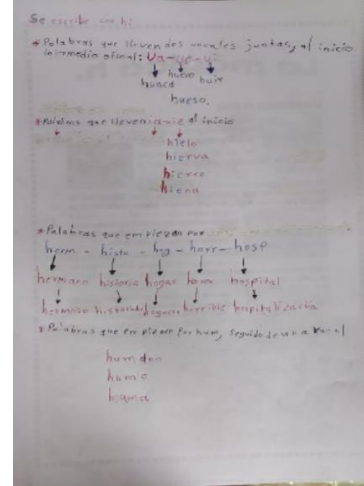 Se escribe con h:
* Palabras que lleven dos vocales juntas, al inicio
intermedio o final: ua-ue-ui
huaca hueso huir
hueso.
* Palabras que lleven ia-ie al inicio
hielo
hierva
hierro
hiena
* Palabras que empiezan por
herm - histo - hog - horr - hosp
hermano historia hogar horror hospital
hermoso hogareño horrible
* Palabras que empiezan por hum, seguido de una vocal
humo